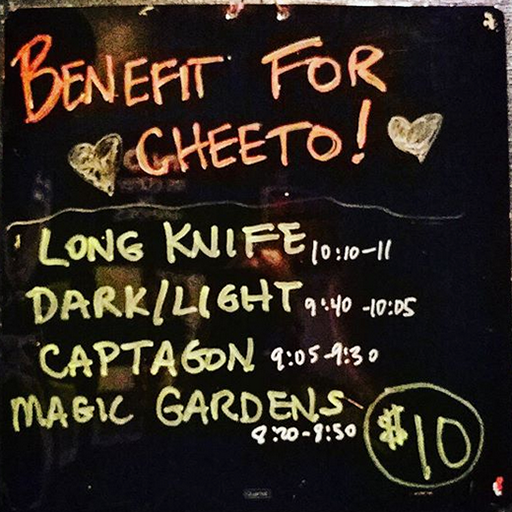 BENEFIT FOR
CHEETO!
LONG KNIFE 10:10-11
DARK/LIGHT 9:40-10:05
CAPTAGON 9:05-9:30
MAGIC GARDENS
8:20-8:50
$10